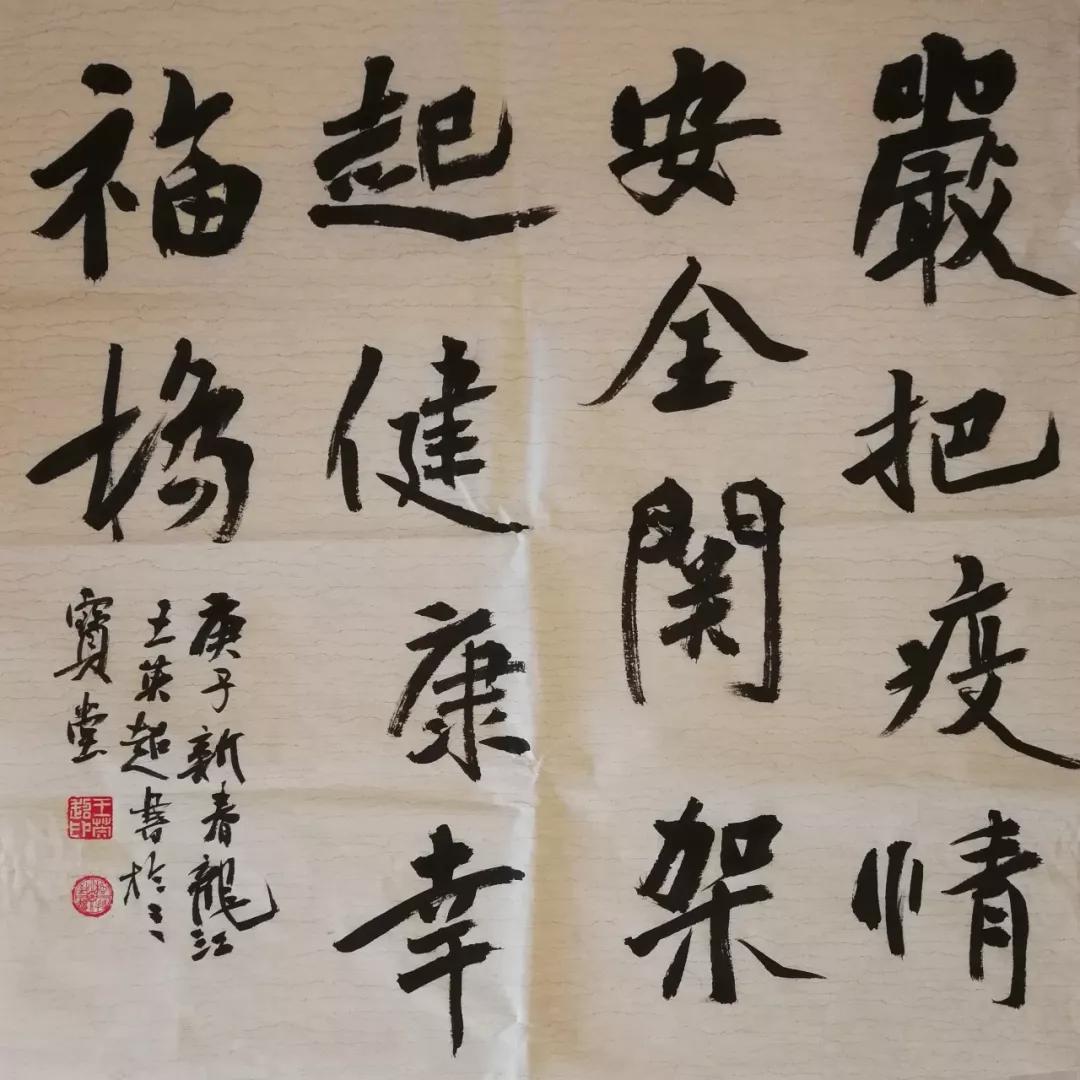 嚴把疫情
安全関架
起健康幸
福橋
庚子新春龍江
王英超書於三
寶堂
王英超印